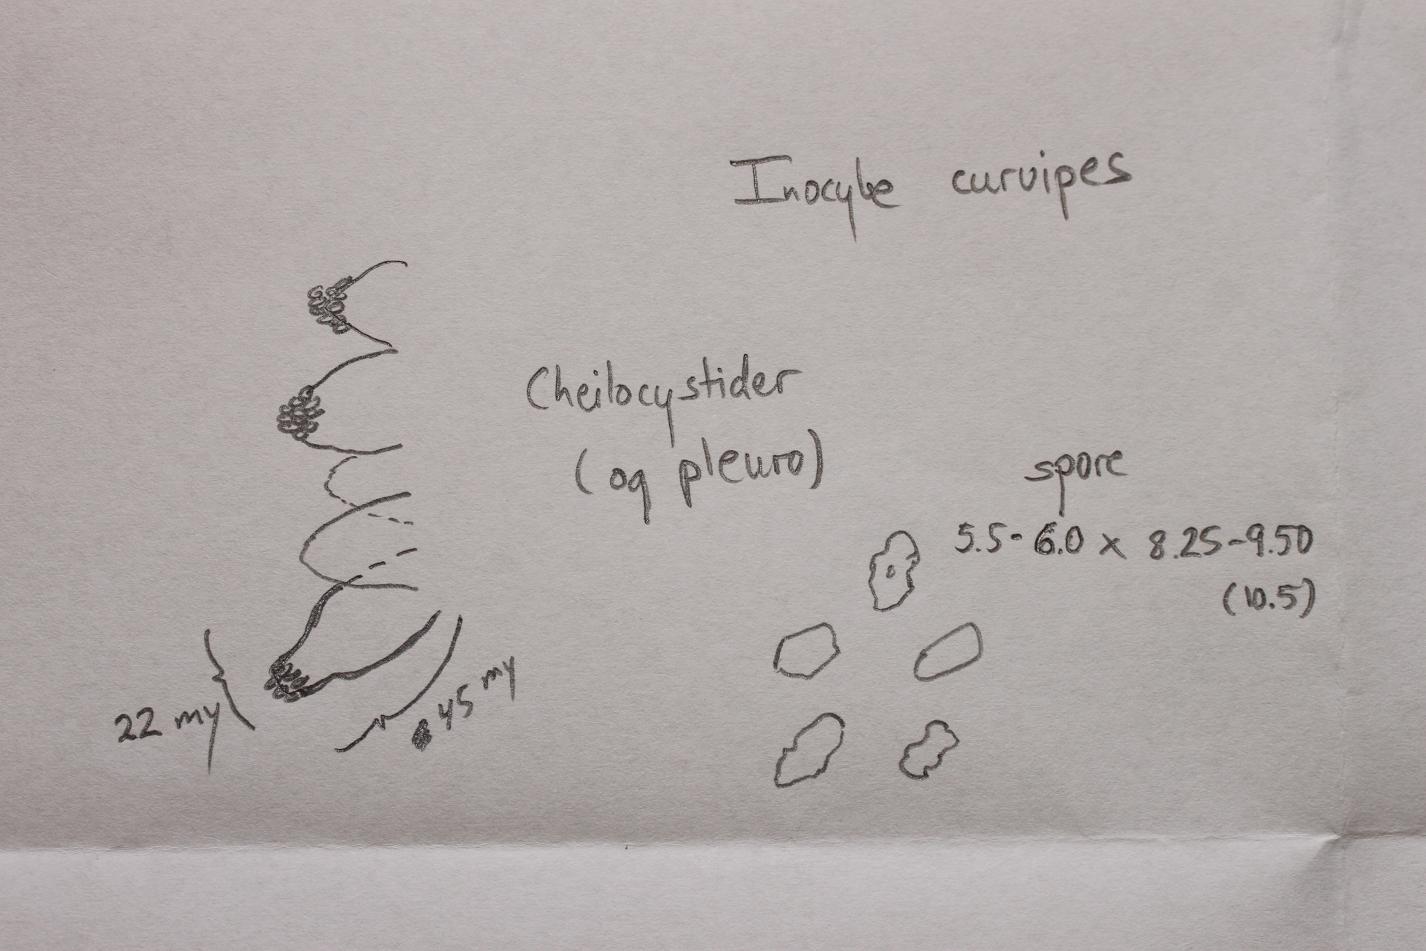 Inocybe curvipes
Cheilocystider
(og pleuro)
spore
5.5-6.0 x 8.25-9.50
(10.5)
22 my
45 my